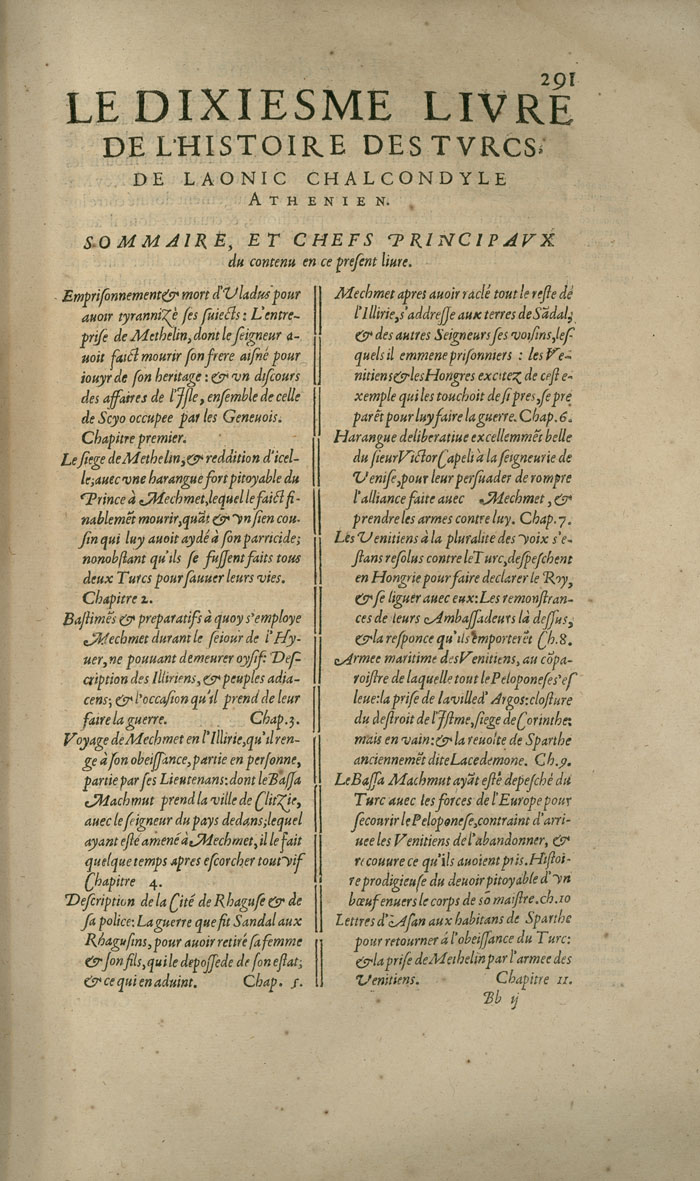 291
LE DIXIESME LIVRE
DE L'HISTOIRE DES TVRCS.
DE LAONIC CHALCONDYLE
ATHENIEN.
SOMMAIRE, ET CHEFS PRINCIPAVX
du contenu en ce preſent liure.
Empriſonnement & mort d'Vladus pour
auoir tyrannizé ſes ſuiects: L'entre-
priſe de Methelin, dont le ſeigneur a-
uoit faict mourir ſon frere aiſné pour
iouyr de ſon heritage: & vn diſcours
des affaires de l'Iſle, enſemble de celle
de Scyo occupee par les Geneuois.
Chapitre premier.
Le ſiege de Methelin, & reddition d'icel-
le; auec vne harangue fort pitoyable du
Prince à Mechmet, lequel le faict fi-
nablemẽt mourir, quãt & vn ſien cou-
ſin qui luy auoit aydé à ſon parricide;
nonobſtant qu'ils ſe fuſſent faits tous
deux Turcs pour ſauuer leurs vies.
Chapitre 2.
Baſtimẽs & preparatifs à quoy s'employe
Mechmet durant le ſeiour de l'Hy-
uer, ne pouuant demeurer oyſif: Deſ-
cription des Illiriens, & peuples adia-
cens; & l'occaſion qu'il prend de leur
faire la guerre. Chap. 3.
Voyage de Mechmet en l'Illirie, qu'il ren-
ge à ſon obeiſſance, partie en perſonne,
partie par ſes Lieutenans: dont le Baſſa
Machmut prend la ville de Clitzie,
auec le ſeigneur du pays dedans; lequel
ayant eſté amené à Mechmet, il le fait
quelque temps apres eſcorcher tout vif
Chapitre 4.
Deſcription de la Cité de Rhaguſe & de
ſa police: La guerre que fit Sandal aux
Rhaguſins, pour auoir retiré ſa femme
& ſon fils, qui le depoſſede de ſon eſtat;
& ce qui en aduint. Chap. 5.
Mechmet apres auoir raclé tout le reſte de
l'Illirie, s'addreſſe aux terres de Sãdal,
& des autres Seigneurs ſes voiſins, leſ-
quels il emmene priſonniers: les Ve-
nitiens & les Hongres excitez de ceſt e-
xemple qui les touchoit de ſi pres, ſe pre
parẽt pour luy faire la guerre. Chap. 6.
Harangue deliberatiue excellemmẽt belle
du ſieur Victor Capeli à la ſeigneurie de
Veniſe, pour leur perſuader de rompre
l'alliance faite auec Mechmet, &
prendre les armes contre luy. Chap. 7.
Les Venitiens à la pluralité des voix s'e-
ſtans reſolus contre le Turc, deſpeſchent
en Hongrie pour faire declarer le Roy,
& ſe liguer auec eux: Les remonſtran-
ces de leurs Ambaſſadeurs là deſſus,
& la reſponce qu'ils emporterẽt Ch. 8.
Armee maritime des Venitiens, au cõpa-
roiſtre de laquelle tout le Peloponeſe s'eſ
leue: la priſe de la ville d'Argos: cloſture
du deſtroit de l'Iſtme, ſiege de Corinthe:
mais en vain: & la reuolte de Sparthe
anciennemẽt dite Lacedemone. Ch. 9.
Le Baſſa Machmut ayãt eſté depeſché du
Turc auec les forces de l'Europe pour
ſecourir le Peloponeſe, contraint d'arri-
uee les Venitiens de l'abandonner, &
recouure ce qu'ils auoient pris. Hiſtoi-
re prodigieuſe du deuoir pitoyable d'vn
bœuf enuers le corps de ſõ maiſtre. ch. 10
Lettres d'Aſan aux habitans de Sparthe
pour retourner à l'obeiſſance du Turc:
& la priſe de Methelin par l'armee des
Venitiens. Chapitre 11.
Bb ij